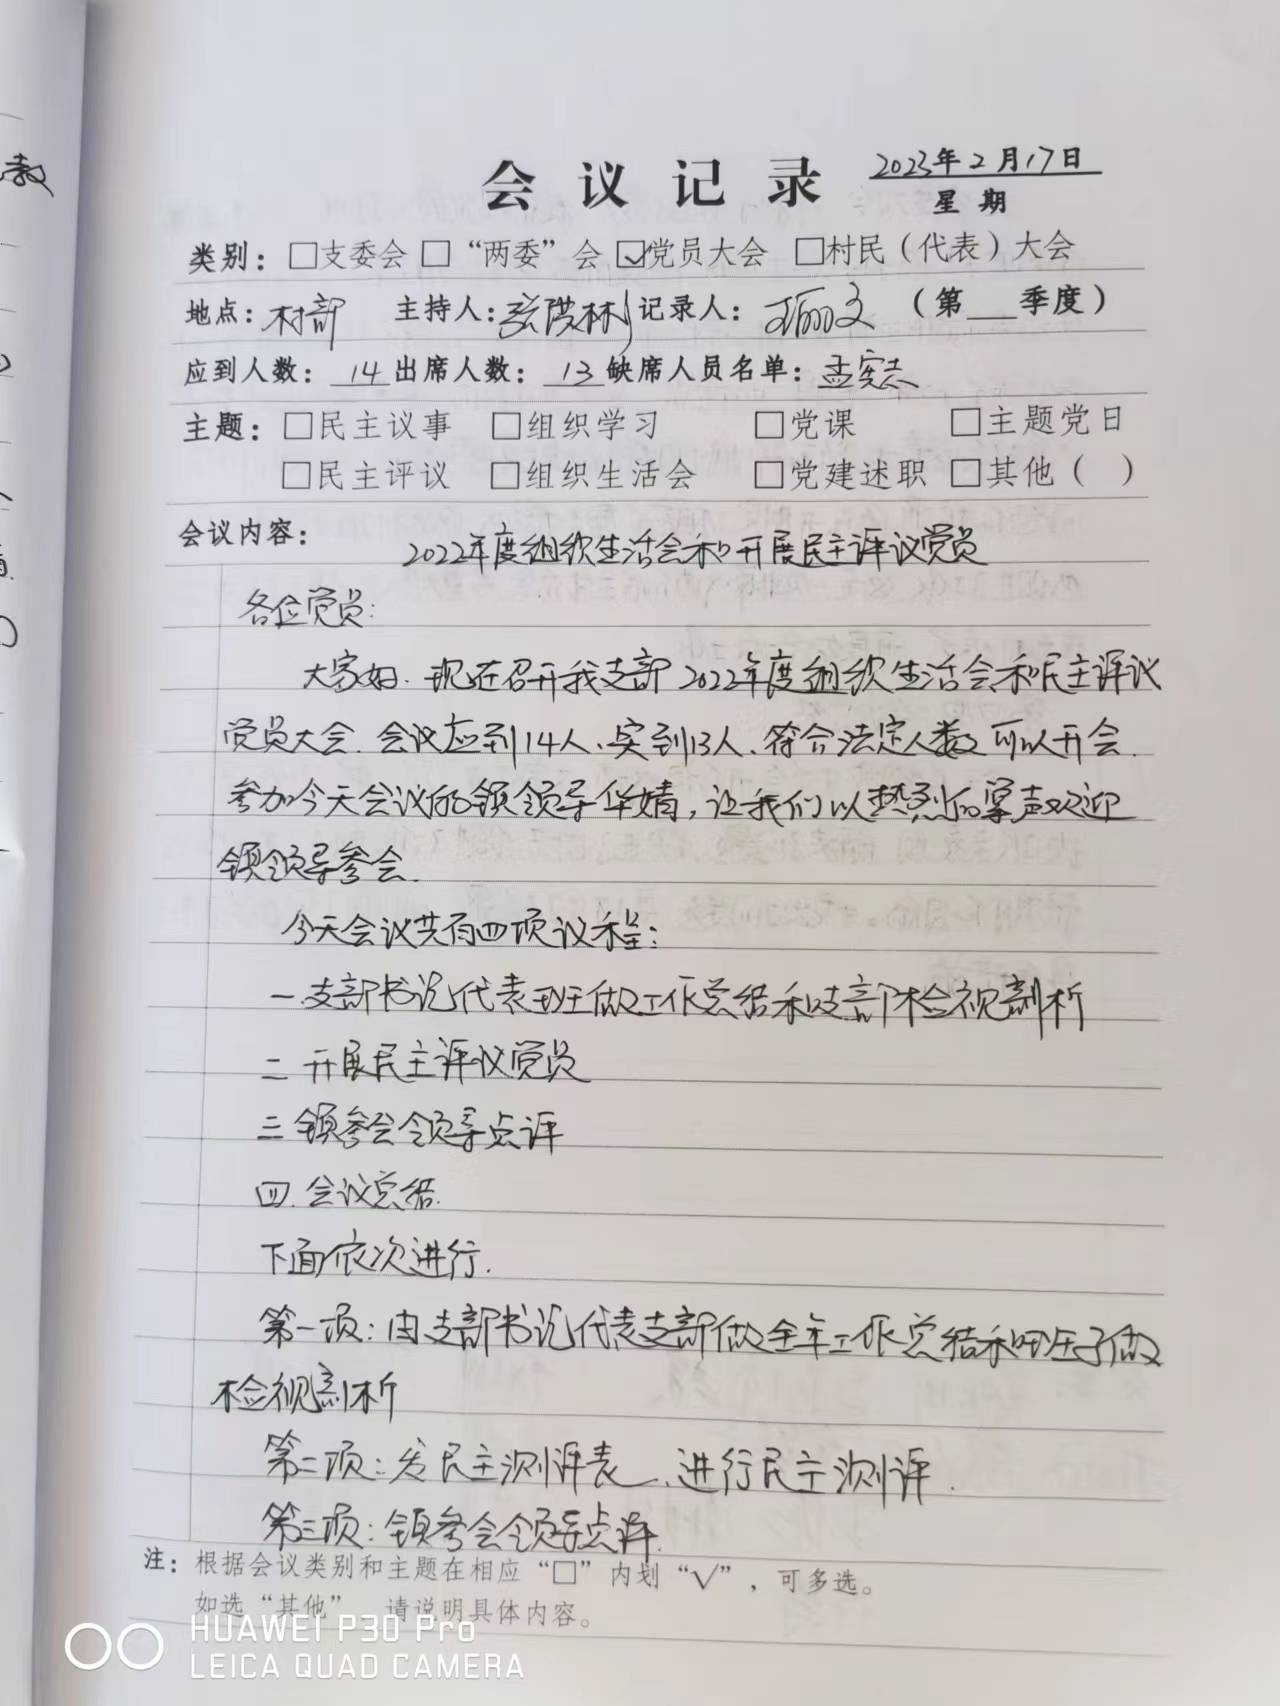 教
会议记录 2023年2月17日
星期
类别：□支委会 □“两委”会 ☑党员大会 □村民（代表）大会
地点：村部 主持人：张洪林 记录人：丽文 （第 季度）
应到人数：14 出席人数：13 缺席人员名单：孟宪志
主题：□民主议事 □组织学习 □党课 □主题党日
□民主评议 □组织生活会 □党建述职 □其他（ ）
会议内容：
2022年度组织生活会和开展民主评议党员
各位党员：
大家好．现在召开我支部2022年度组织生活会和民主评议
党员大会．会议应到14人、实到13人．符合法定人数可以开会．
参加今天会议的镇领导华婧，让我们以热烈的掌声欢迎
镇领导参会．
今天会议共有四项议程：
一．支部书记代表班做工作总结和支部检视剖析
二 开展民主评议党员
三 镇参会领导点评
四．会议总结．
下面依次进行．
第一项：由支部书记代表支部做全年工作总结和班子做
检视剖析
第二项：发民主测评表、进行民主测评．
第三项：镇参会领导点评．
注：根据会议类别和主题在相应“□”内划“√”，可多选。
如选“其他” 请说明具体内容。
HUAWEI P30 Pro
LEICA QUAD CAMERA